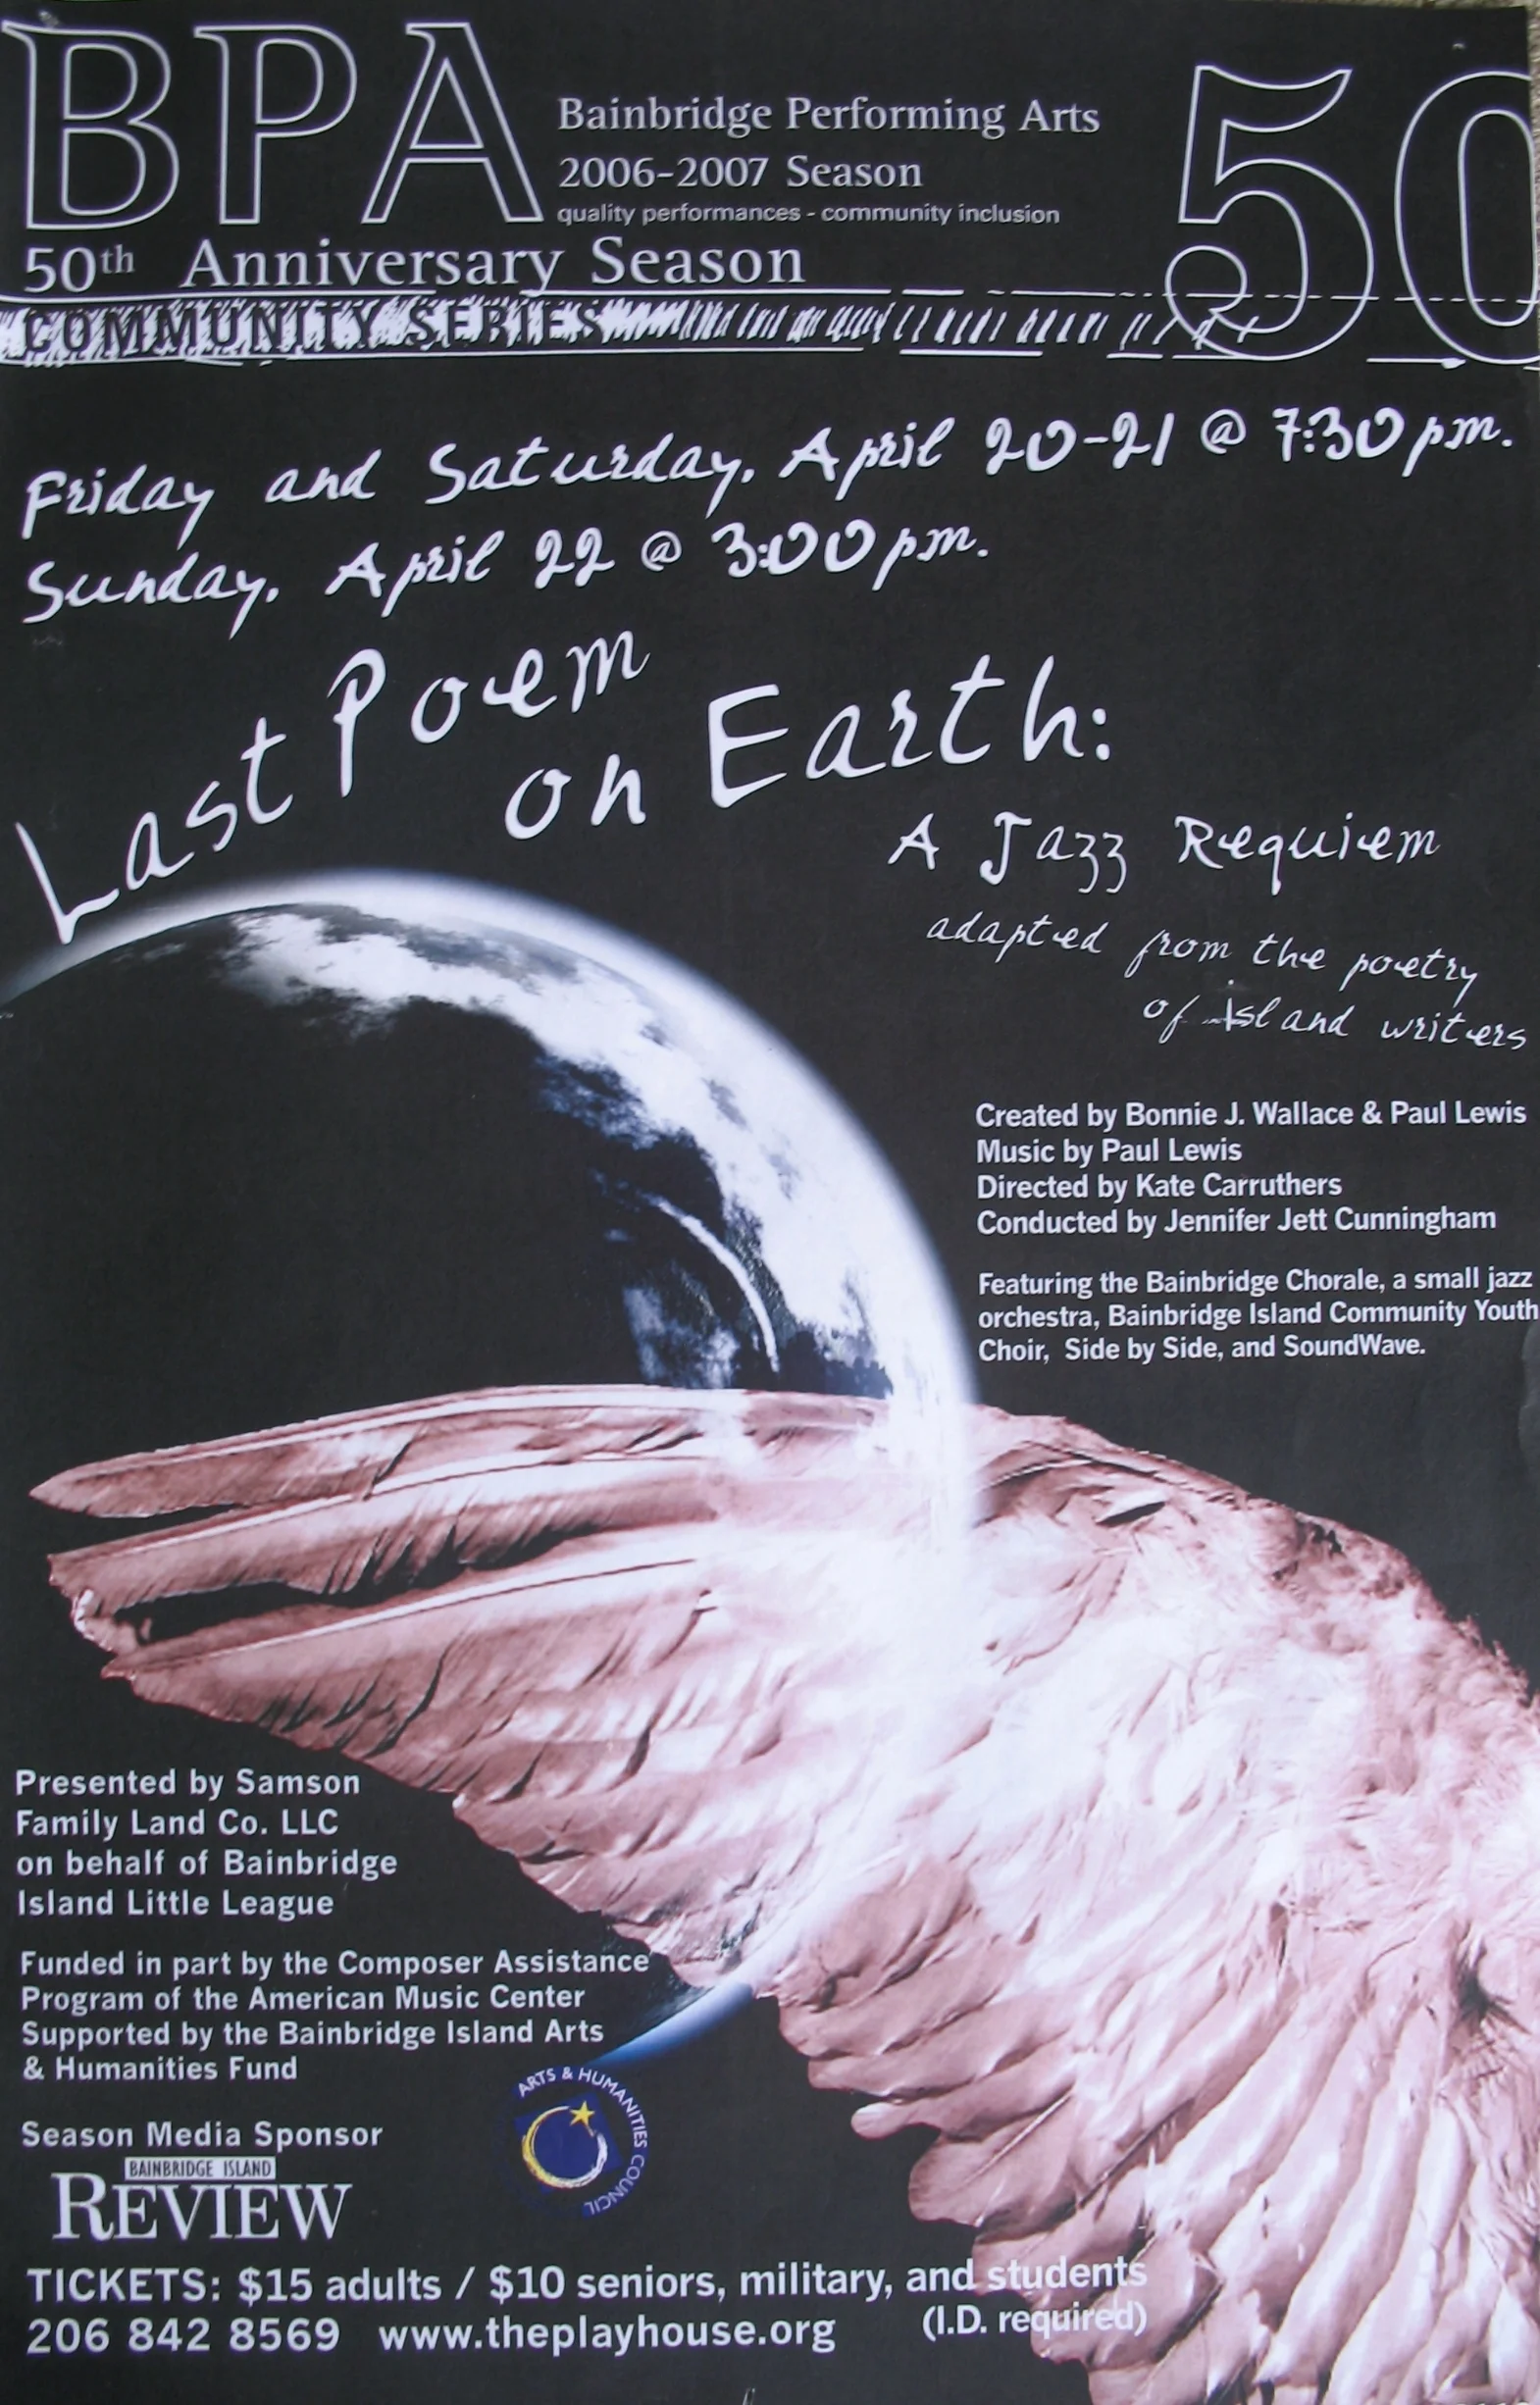 BPA
Bainbridge Performing Arts
2006-2007 Season
quality performances - community inclusion
50
50th Anniversary Season
COMMUNITY SERIES
Friday and Saturday, April 20-21 @ 7:30pm.
Sunday, April 22 @ 3:00pm.
Last Poem
on Earth:
A Jazz Requiem
adapted from the poetry
of Island writers
Created by Bonnie J. Wallace & Paul Lewis
Music by Paul Lewis
Directed by Kate Carruthers
Conducted by Jennifer Jett Cunningham
Featuring the Bainbridge Chorale, a small jazz
orchestra, Bainbridge Island Community Youth
Choir, Side by Side, and SoundWave.
Presented by Samson
Family Land Co. LLC
on behalf of Bainbridge
Island Little League
Funded in part by the Composer Assistance
Program of the American Music Center
Supported by the Bainbridge Island Arts
& Humanities Fund
ARTS & HUMANITIES COUNCIL
Season Media Sponsor
BAINBRIDGE ISLAND
REVIEW
TICKETS: $15 adults / $10 seniors, military, and students
(I.D. required)
206 842 8569 www.theplayhouse.org